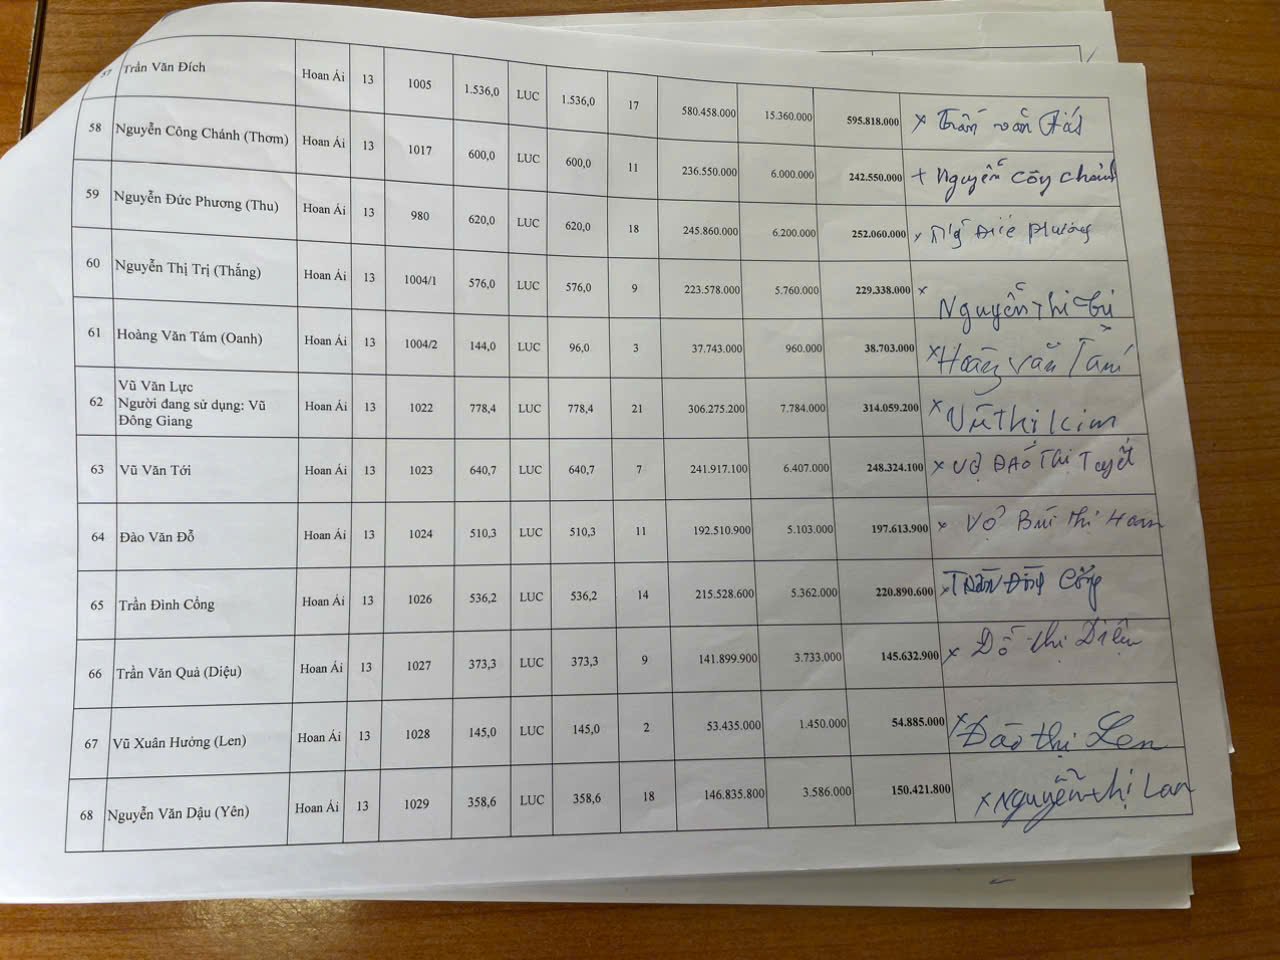 57 Trần Văn Đích Hoan Ái 13 1005 1.536,0 LUC 1.536,0 17 580.458.000 15.360.000 595.818.000 x Trần văn
58 Nguyễn Công Chánh (Thơm) Hoan Ái 13 1017 600,0 LUC 600,0 11 236.550.000 6.000.000 242.550.000 + Nguyễn Công Chánh
59 Nguyễn Đức Phương (Thu) Hoan Ái 13 980 620,0 LUC 620,0 18 245.860.000 6.200.000 252.060.000 x Đức Phương
60 Nguyễn Thị Trị (Thắng) Hoan Ái 13 1004/1 576,0 LUC 576,0 9 223.578.000 5.760.000 229.338.000 x Nguyễn thị
61 Hoàng Văn Tám (Oanh) Hoan Ái 13 1004/2 144,0 LUC 96,0 3 37.743.000 960.000 38.703.000 x Hoàng Văn
62 Vũ Văn Lực
Người đang sử dụng: Vũ
Đông Giang Hoan Ái 13 1022 778,4 LUC 778,4 21 306.275.200 7.784.000 314.059.200 x Vũ Thị Kim
63 Vũ Văn Tới Hoan Ái 13 1023 640,7 LUC 640,7 7 241.917.100 6.407.000 248.324.100 x Vợ Đào Thị Tuyết
64 Đào Văn Đỗ Hoan Ái 13 1024 510,3 LUC 510,3 11 192.510.900 5.103.000 197.613.900 x Vợ Bùi Thị Hoan
65 Trần Đình Cổng Hoan Ái 13 1026 536,2 LUC 536,2 14 215.528.600 5.362.000 220.890.600 x Trần Đình Cổng
66 Trần Văn Quả (Diệu) Hoan Ái 13 1027 373,3 LUC 373,3 9 141.899.900 3.733.000 145.632.900 x Đỗ thị Diệu
67 Vũ Xuân Hưởng (Len) Hoan Ái 13 1028 145,0 LUC 145,0 2 53.435.000 1.450.000 54.885.000 x Đào thị Len
68 Nguyễn Văn Dậu (Yên) Hoan Ái 13 1029 358,6 LUC 358,6 18 146.835.800 3.586.000 150.421.800 x Nguyễn thị Lan